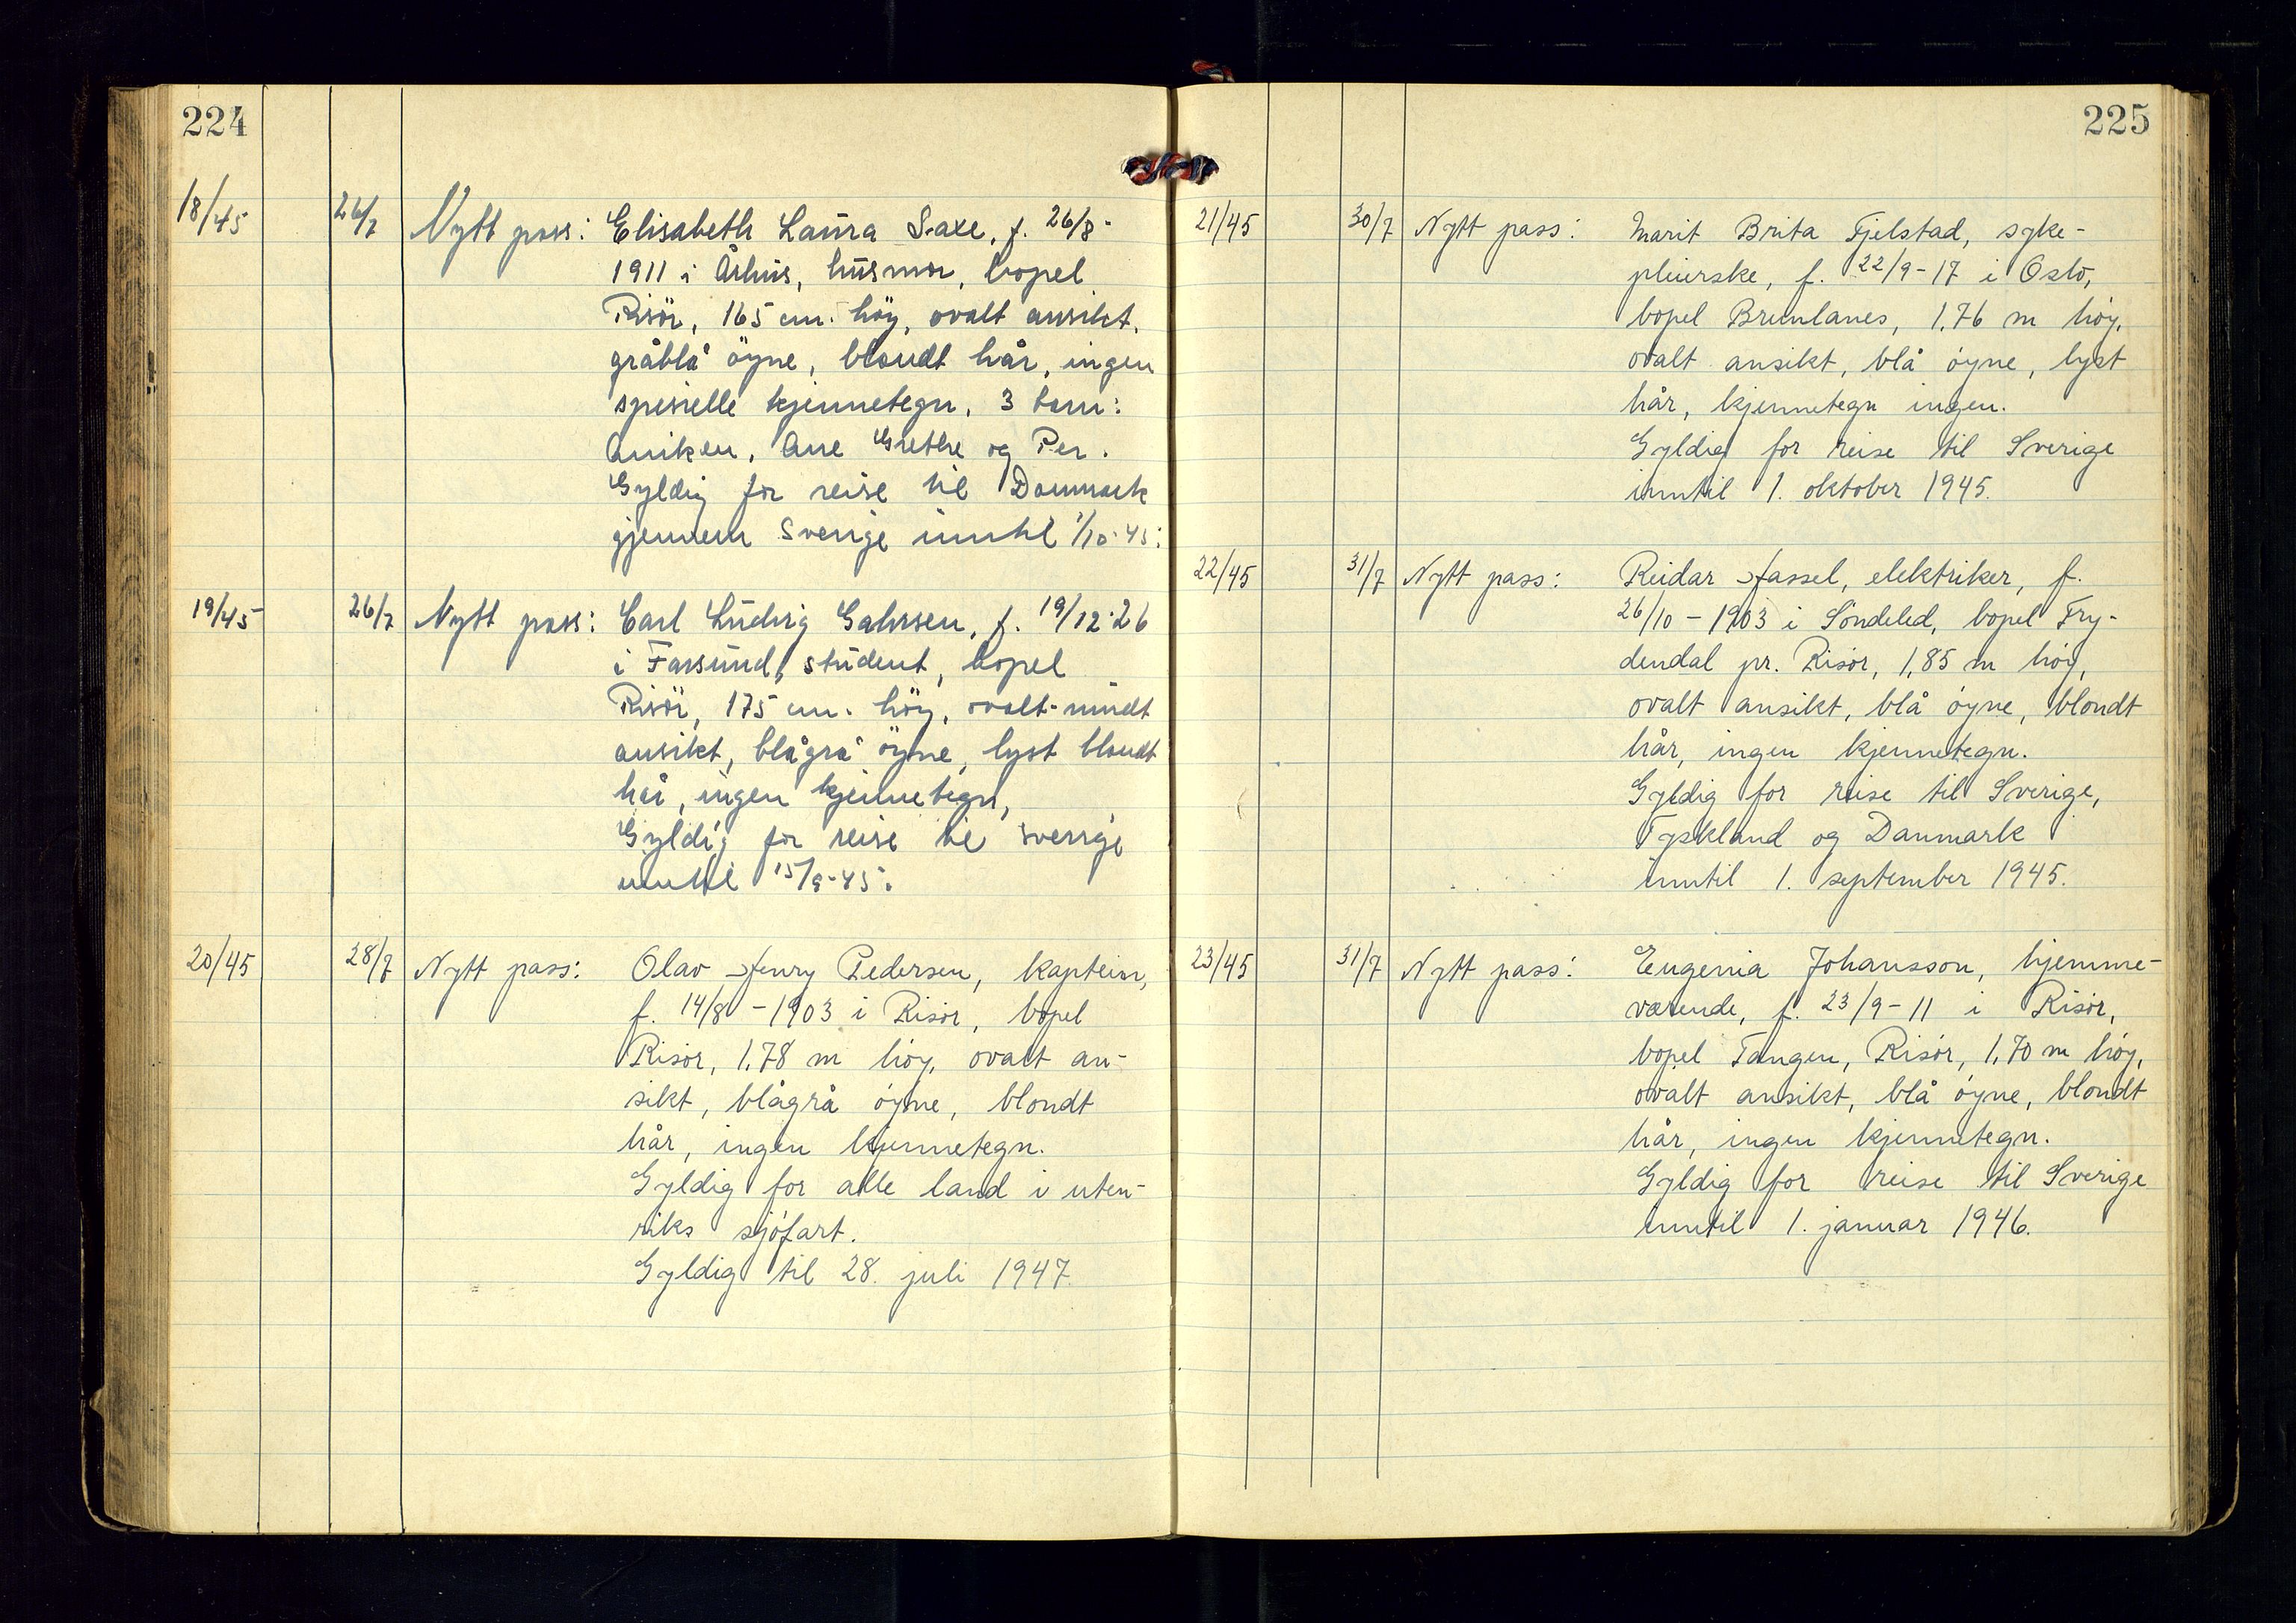 224
18/45 26/7 Nytt pass: Elisabeth Laura Saxe, f. 26/8-
1911 i Århus, husmor, bopel
Risör, 165 cm. höy, ovalt ansikt,
gråblå öyne, blondt hår, ingen
spesielle kjennetegn, 3 barn:
Aniken, Ane Grethe og Per.
Gyldig for reise til Danmark
gjennem Sverige inntil 1/10-45.
19/45 26/7 Nytt pass: Carl Ludvig Gahrsen, f. 19/12-26
i Farsund, student, bopel
Risör, 175 cm. höy, ovalt-rundt
ansikt, blågrå öyne, lyst blondt
hår, ingen kjennetegn,
Gyldig for reise til Sverige
inntil 15/9-45.
20/45 28/7 Nytt pass: Olav Henry Pedersen, kaptein,
f. 14/8-1903 i Risör, bopel
Risör, 1,78 m höy, ovalt an-
sikt, blågrå öyne, blondt
hår, ingen kjennetegn.
Gyldig for alle land i uten-
riks sjöfart.
Gyldig til 28. juli 1947.
225
21/45 30/7 Nytt pass: Marit Brita Fjelstad, syke-
pleierske, f. 22/9-17 i Oslo,
bopel Brunlanes, 1,76 m höy,
ovalt ansikt, blå öyne, lyst
hår, kjennetegn ingen.
Gyldig for reise til Sverige
inntil 1. oktober 1945.
22/45 31/7 Nytt pass: Reidar Hassel, elektriker, f.
26/10-1903 i Söndeled, bopel Fry-
dendal pr. Risör, 1,85 m höy,
ovalt ansikt, blå öyne, blondt
hår, ingen kjennetegn.
Gyldig for reise til Sverige,
Tyskland og Danmark
inntil 1. september 1945.
23/45 31/7 Nytt pass: Eugenia Johansson, hjemme-
værende, f. 23/9-11 i Risör,
bopel Tangen, Risör, 1,70 m höy,
ovalt ansikt, blå öyne, blondt
hår, ingen kjennetegn.
Gyldig for reise til Sverige
inntil 1. januar 1946.